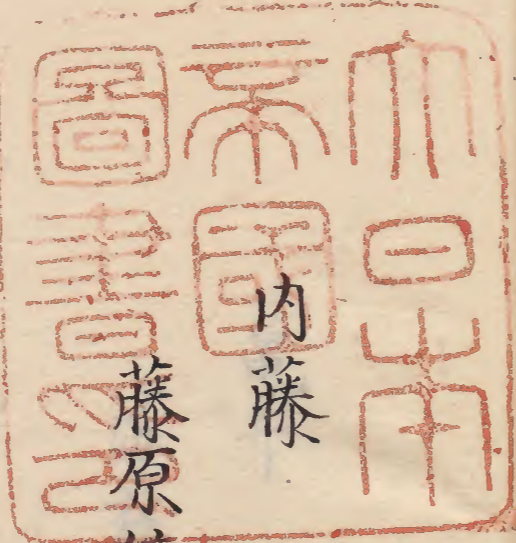 大日本
帝國
圖書印
内藤
藤原